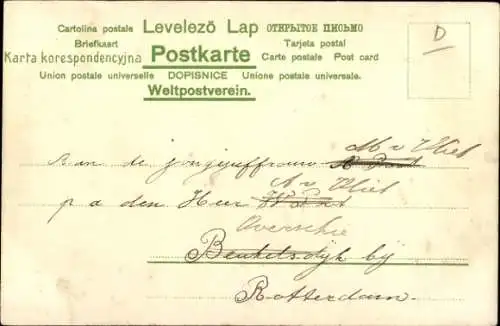 Cartolina postale Levelező Lap ОТКРЫТОЕ ПИСЬМО
Briefkaart Tarjeta postal
Karta korespondencyjna Postkarte Carte postale Post card
Union postale universelle DOPISNICE Unione postale universale.
Weltpostverein.
D
M v Vliet
Aan de Jongejuffrouw
A v Vliet
p a den Heer
Overschie
Beukelsdijk bij
Rotterdam.